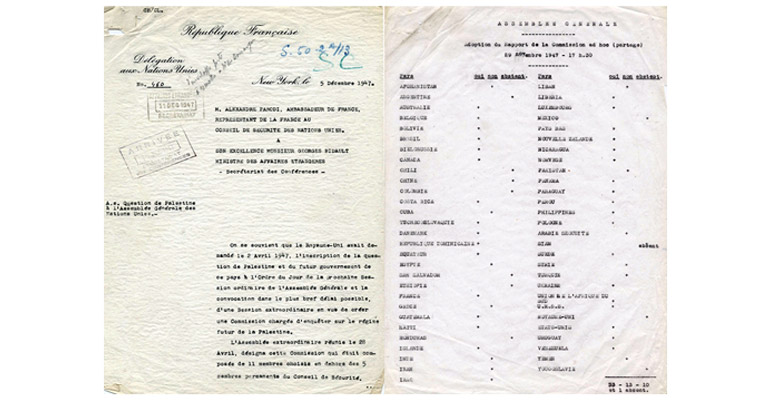 République Française
Délégation
aux Nations Unies
No. 460
New York, le 5 Décembre 1947.
11 DEC 1947
M. ALEXANDRE PARODI, AMBASSADEUR DE FRANCE,
REPRESENTANT DE LA FRANCE AU
CONSEIL DE SECURITE DES NATIONS UNIES,
A
SON EXCELLENCE MONSIEUR GEORGES BIDAULT
MINISTRE DES AFFAIRES ETRANGERES
- Secrétariat des Conférences -
A.s. Question de Palestine
à l'Assemblée Générale des
Nations Unies.-
On se souvient que le Royaume-Uni avait de-
mandé le 2 Avril 1947, l'inscription de la ques-
tion de Palestine et du futur gouvernement de
ce pays à l'Ordre du Jour de la prochaine Ses-
sion ordinaire de l'Assemblée Générale et la
convocation dans le plus bref délai possible,
d'une Session extraordinaire en vue de créer
une Commission chargée d'enquêter sur le régime
futur de la Palestine.
L'Assemblée extraordinaire réunie le 28
Avril, désigna cette Commission qui était com-
posée de 11 membres choisis en dehors des 5
membres permanents du Conseil de Sécurité.
ASSEMBLEE GENERALE
Adoption du Rapport de la Commission ad hoc (partage)
29 Novembre 1947 - 17 H.
Pays oui non abstent. Pays oui non abstent.
AFGHANISTAN LIBAN
ARGENTINE LIBERIA
AUSTRALIE LUXEMBOURG
BELGIQUE MEXICO
BOLIVIE PAYS BAS
BRESIL NOUVELLE ZELANDE
BIELORUSSIE NICARAGUA
CANADA NORVEGE
CHILI PAKISTAN
CHINE PANAMA
COLOMBIE PARAGUAY
COSTA RICA PEROU
CUBA PHILIPPINES
TCHECOSLOVAQUIE POLOGNE
DANEMARK ARABIE SEOUDITE
REPUBLIQUE DOMINICAINE SIAM absent
EQUATEUR SUEDE
EGYPTE SYRIE
SAN SALVADOR TURQUIE
ETHIOPIE UKRAINE
FRANCE UNION DE L'AFRIQUE DU
SUD
GRECE U.R.S.S.
GUATEMALA ROYAUME-UNI
HAITI ETATS-UNIS
HONDURAS URUGUAY
ISLANDE VENEZUELA
INDE YEMEN
IRAN YOUGOSLAVIE
IRAK
33 - 13 - 10
et 1 absent.